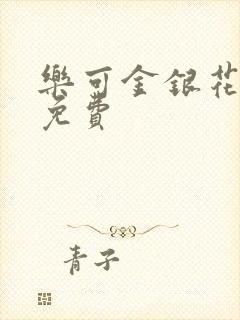 樂可金銀花
免費
青子